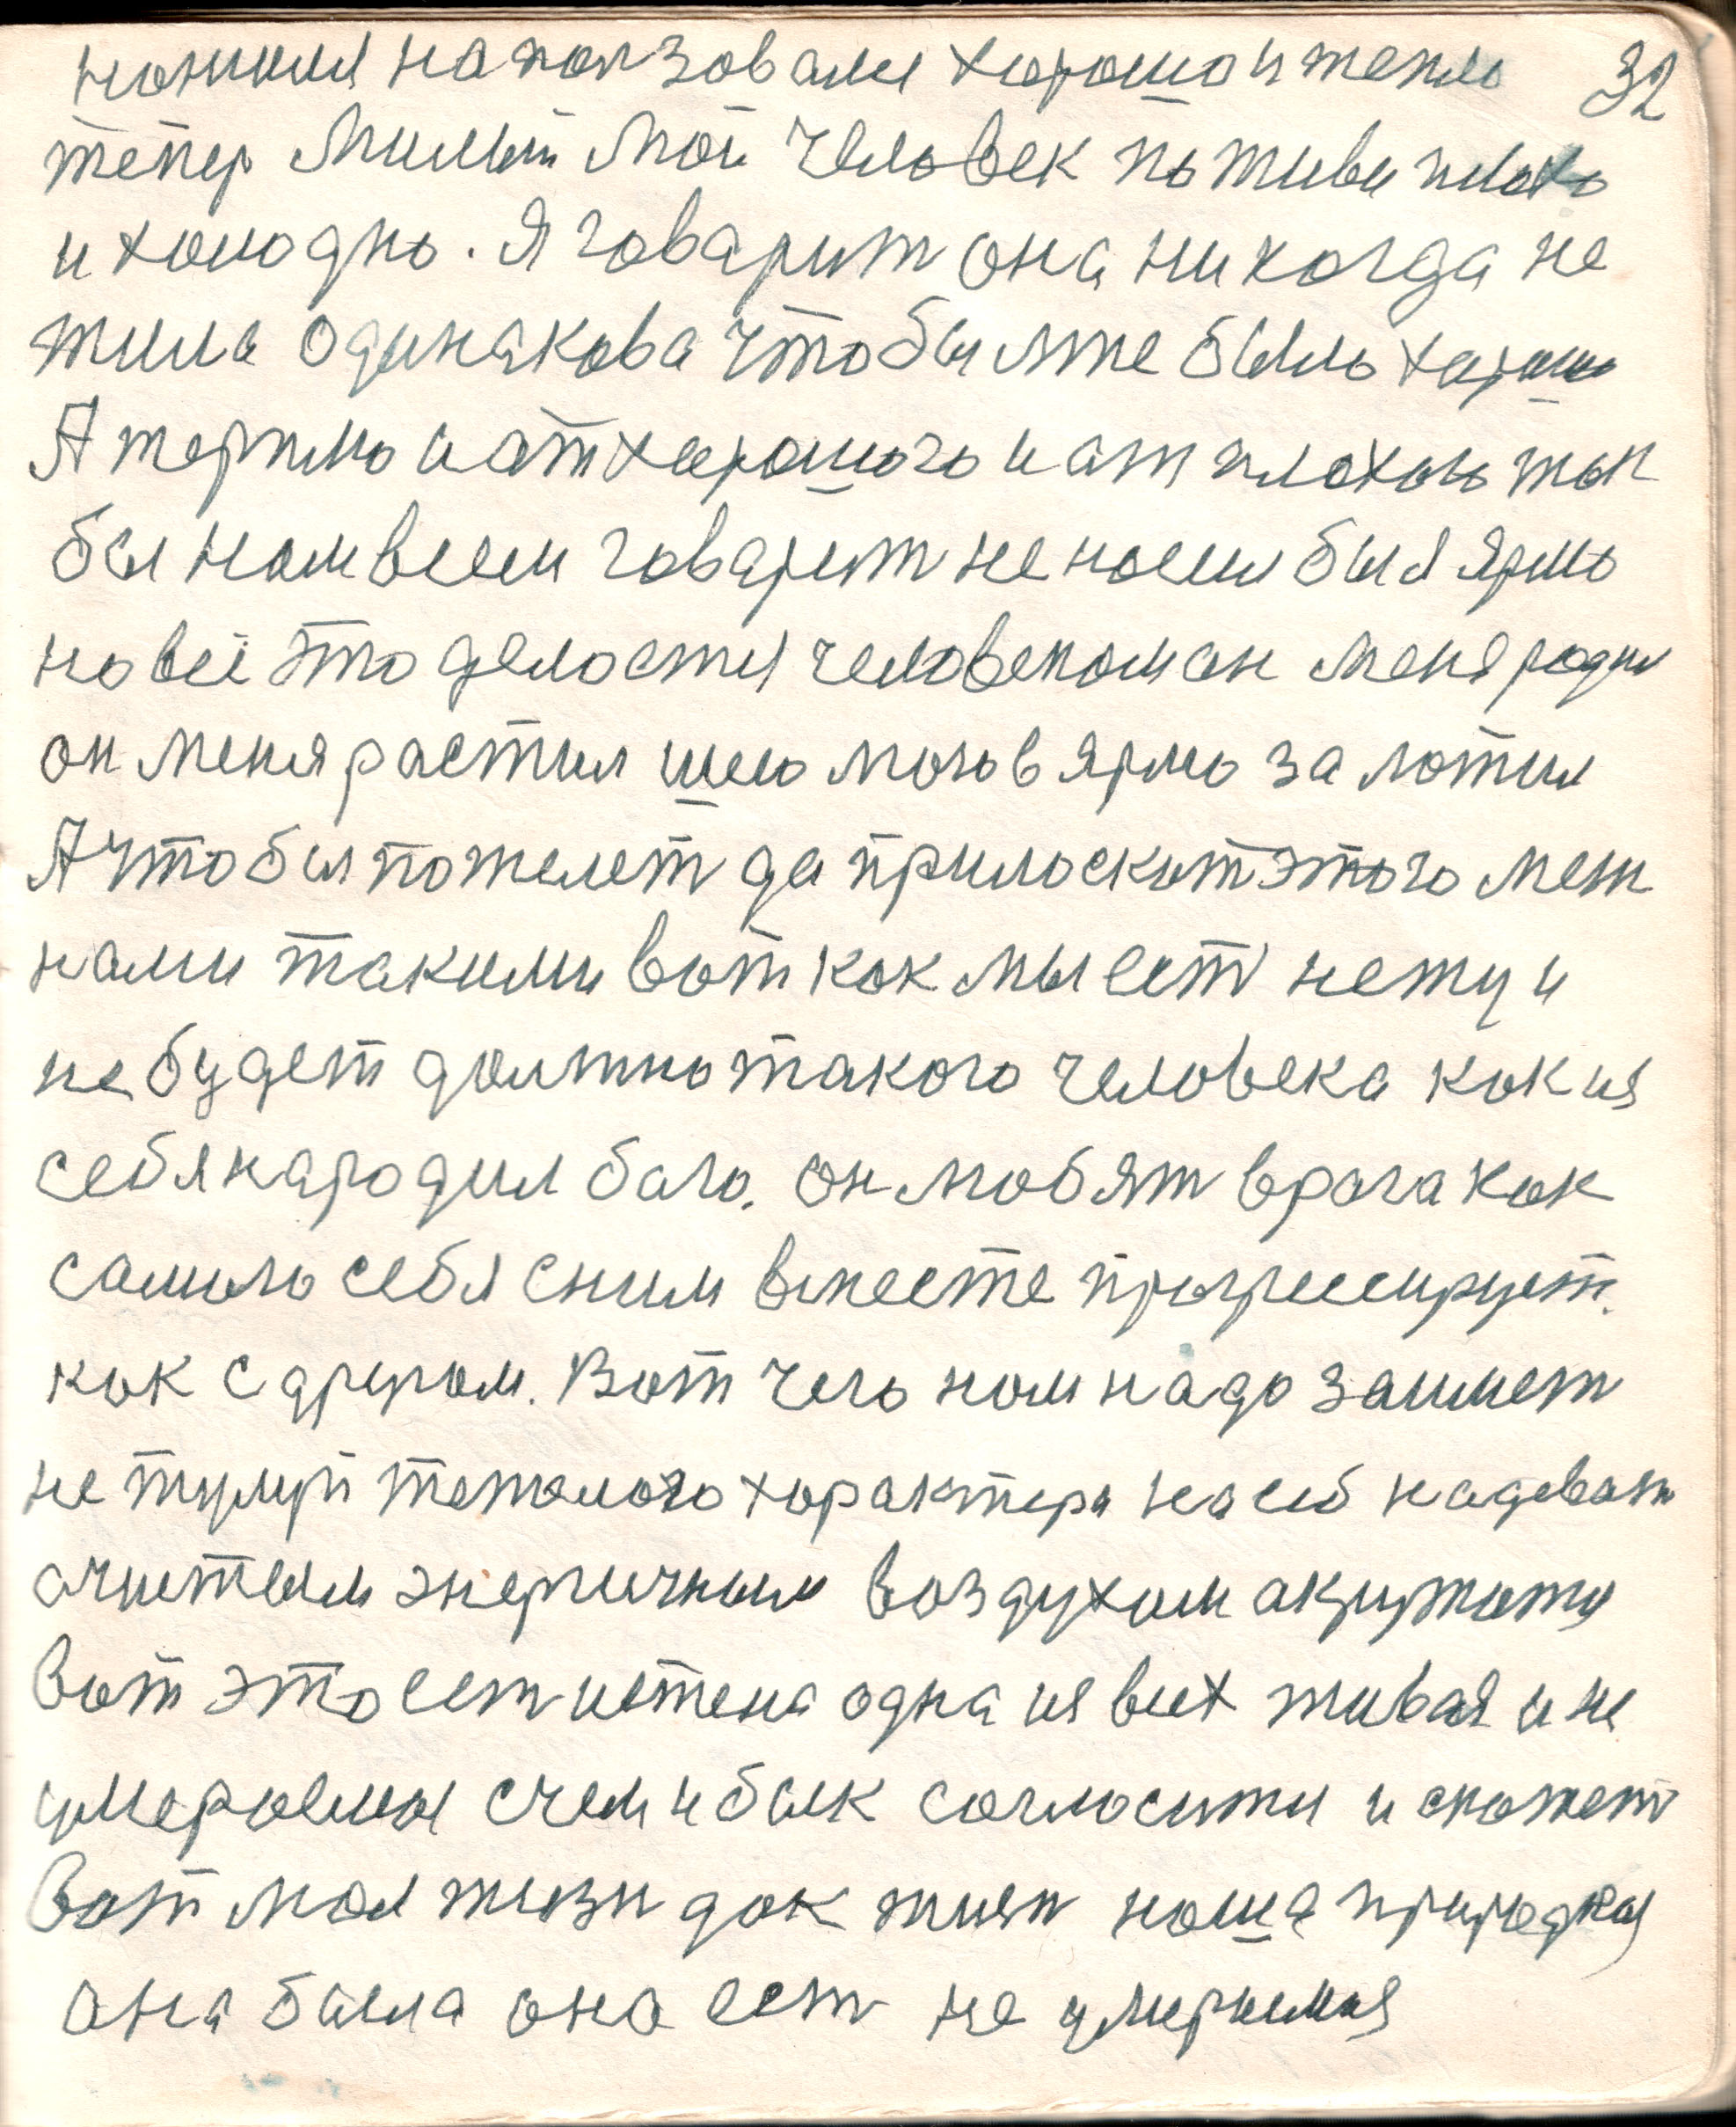 32
напользовали хорошо и тепло
тепер милый мой человек поживи плохо
и холодно. Я говарит она никогда не
жила одинакова чтобы мне было харашо
Я терплю и от харошого и от плохого так
бы нам всем говарит не носил бы я ярмо
но всё это делается человеком он меня родил
он меня растил шею мого в ярмо заложил
А чтобы пожелет да приласкит этого меж
нами такими вот как мы ест нету и
не будет должно такого человека как ия
себя народил бога. он любят врага как
самого себя с ним вместе прогресирует.
как с другом. Вот чего нам надо заимет
не тулуп тежолого характера на себ надеват
а чистым энергичным воздухом акружатся
вот это ест истена одна из всех живая и не
умероемая с чем и бык согласится и скажет
вот моя жизн дак жизн наша природная
она была она ест не умираемая